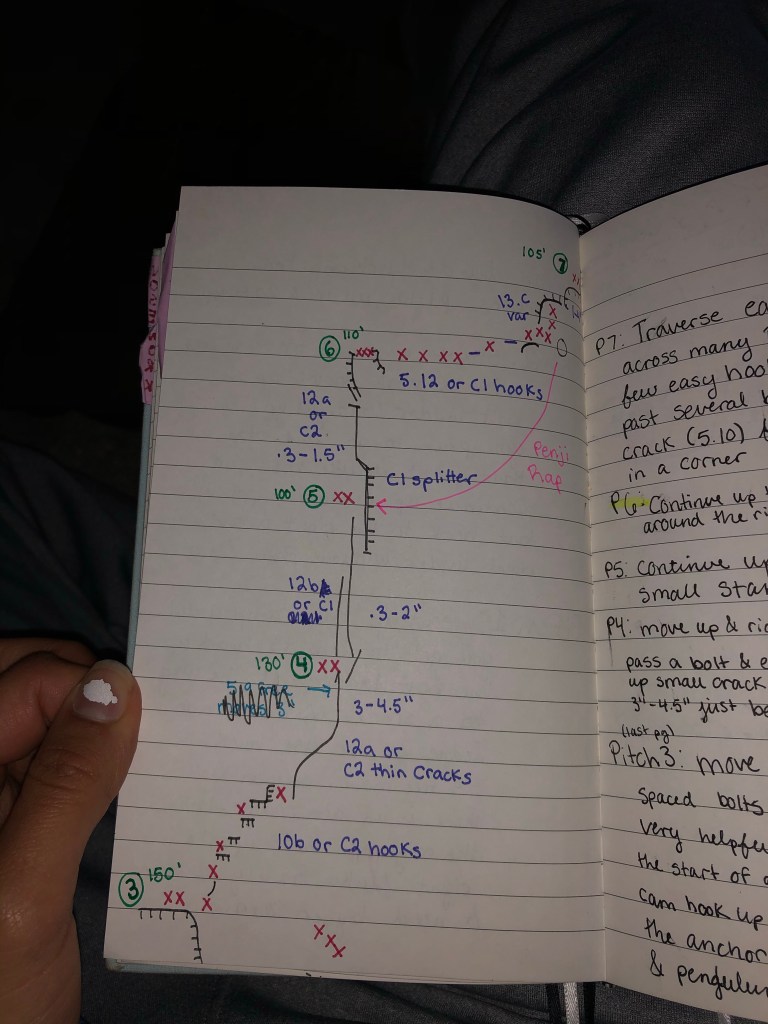 105' 7
13.c
var
110'
6 xxx x x xx - x - xxx
5.12 or C1 hooks
12a
or
C2
.3-1.5"
Penji
Rap
C1 splitter
100' 5 xx
12b
or C1
.3-2"
130' 4 xx
3-4.5"
12a or
C2 thin cracks
x
x
x
10b or C2 hooks
x
3 150'
xx x
xxx
P7: Traverse ea
across many
few easy hoo
past several
crack (5.10)
in a corner
P6: Continue up
around the ri
P5: Continue up
small sta
P4: move up & ri
pass a bolt & e
up small crack
3"-4.5" just be
(last pg)
Pitch 3: move
spaced bolts
very helpfu
the start of
cam hook up
the anchor
& pendulu